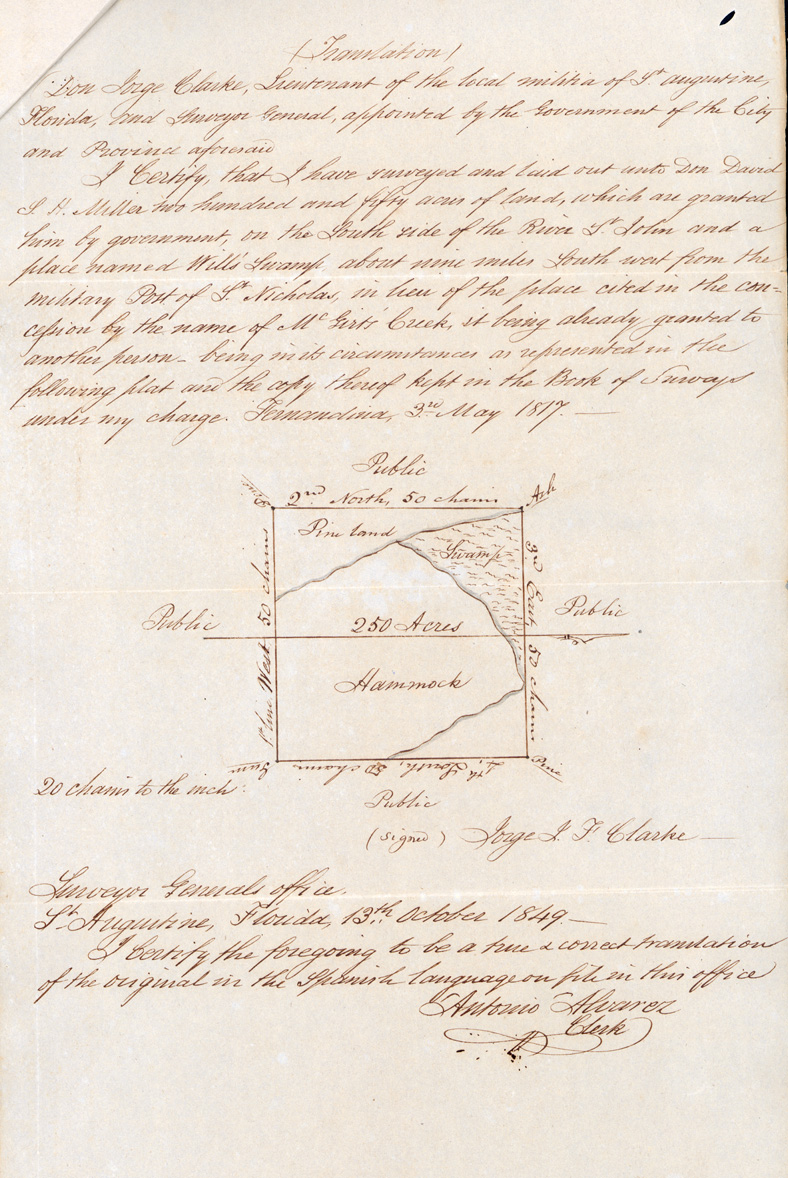 (Translation)
Don Jorge Clarke, Lieutenant of the local militia of St. augustine,
Florida, and Surveyor General, appointed by the Government of the City
and Province aforesaid
I Certify, that I have surveyed and laid out unto Don David
S. H. Miller two hundred and fifty acres of land, which are granted
him by government, on the South side of the River St. John and a
place named Will's Swamp, about nine miles South west from the
military Post of St. Nicholas, in lieu of the place cited in the con-
cession by the name of Mc Girts' Creek, it being already granted to
another person - being in its circumstances as represented in the
following plat and the copy thereof kept in the Book of Surveys
under my charge. Fernandina, 3rd May 1817. —
Public
Pine
2nd North, 50 chains
Ash
Pine land
Swamp
1st line West 50 chains
3rd East, 50 chains
Public
250 Acres
Public
Hammock
4th South, 50 chains
Pine
20 chains to the inch.
Public
(signed) Jorge J. F. Clarke —
Surveyor Generals office.
St. Augustine, Florida, 13th October 1849. —
I Certify the foregoing to be a true & correct translation
of the original in the Spanish language on file in this office
Antonio Alvarez
Clerk